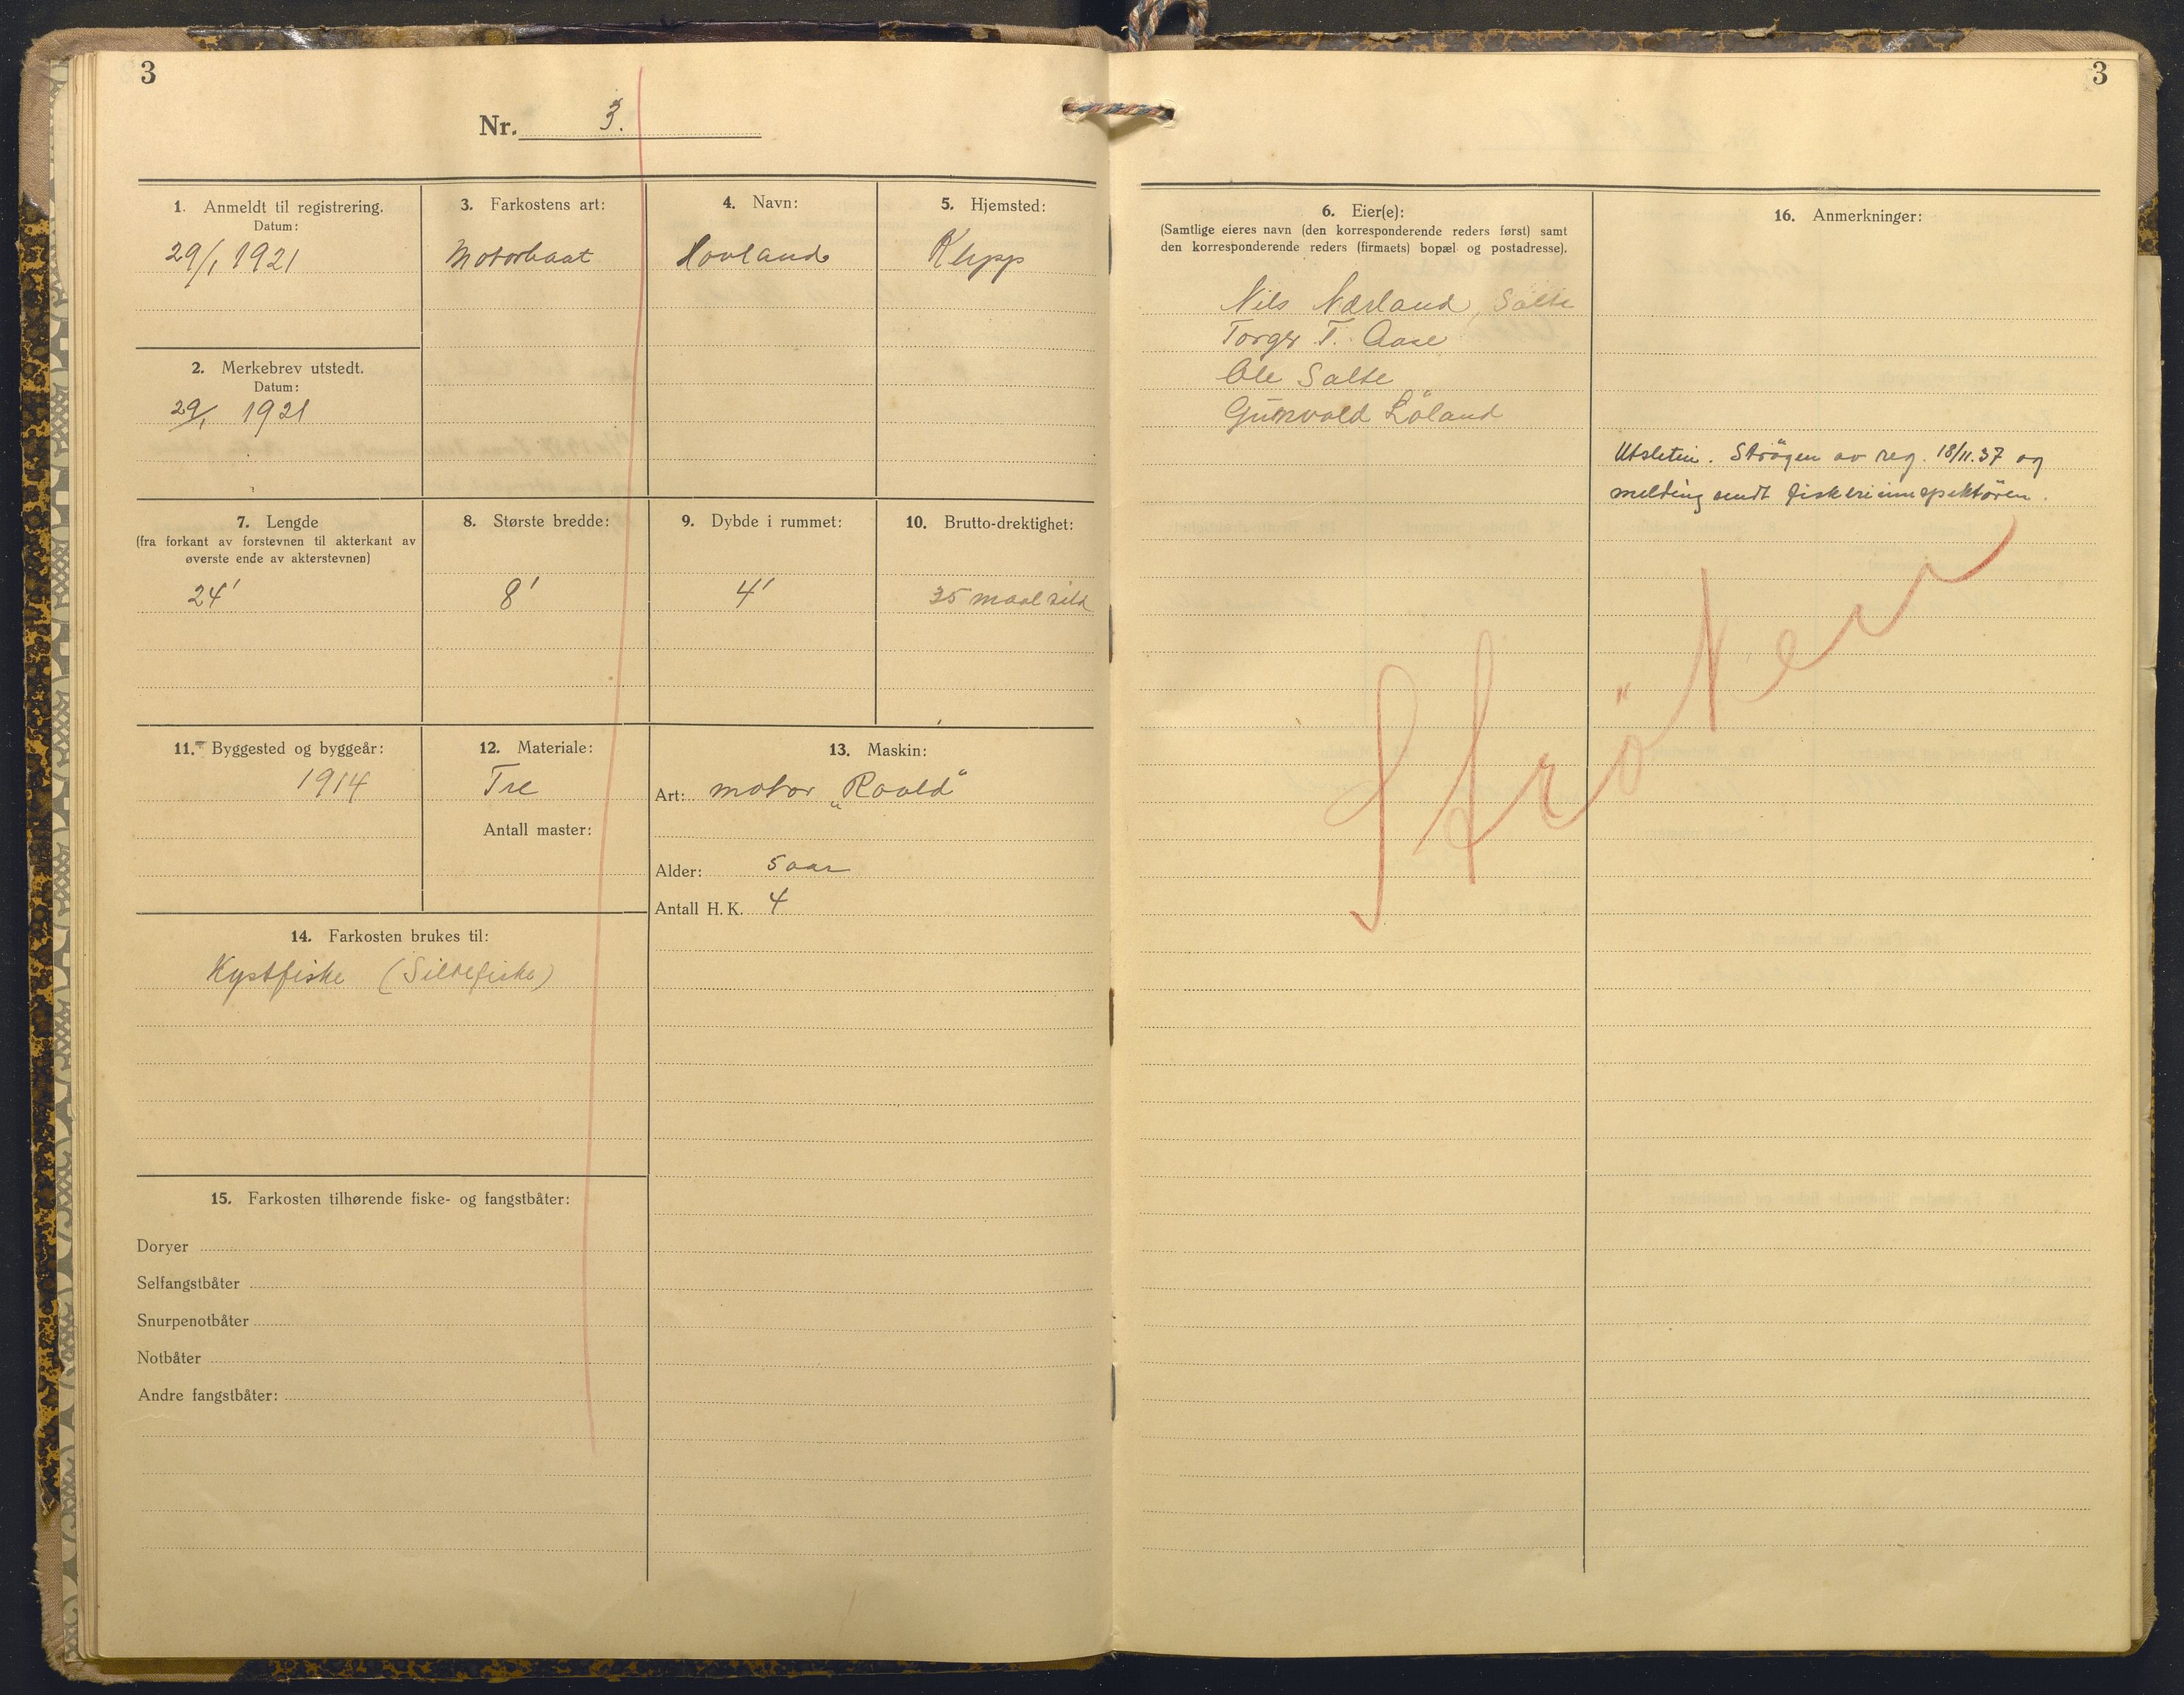 3
Nr. 3.
1. Anmeldt til registrering.
Datum:
29/1 1921
2. Merkebrev utstedt.
Datum:
29/1 1921
3. Farkostens art:
Motorbaat
4. Navn:
Hovland
5. Hjemsted:
Klepp
7. Lengde
(fra forkant av forstevnen til akterkant av
øverste ende av akterstevnen)
24'
8. Største bredde:
8'
9. Dybde i rummet:
4'
10. Brutto-drektighet:
35 maal sild
11. Byggested og byggeår:
1914
12. Materiale:
Tre
Antall master:
13. Maskin:
Art: motor „Roald"
Alder: 5 aar
Antall H. K. 4
14. Farkosten brukes til:
Kystfiske (Sildefiske)
15. Farkosten tilhørende fiske- og fangstbåter:
Doryer
Selfangstbåter
Snurpenotbåter
Notbåter
Andre fangstbåter:
3
6. Eier(e):
(Samtlige eieres navn (den korresponderende reders først) samt
den korresponderende reders (firmaets) bopæl og postadresse).
Nils Nærland, Salte
Torger T. Aase
Ole Salte
Gunvald Löland
16. Anmerkninger:
Utsletin. Strögen av reg. 18/11.37 og
melding sendt fiskeriinspektören.
Ströken